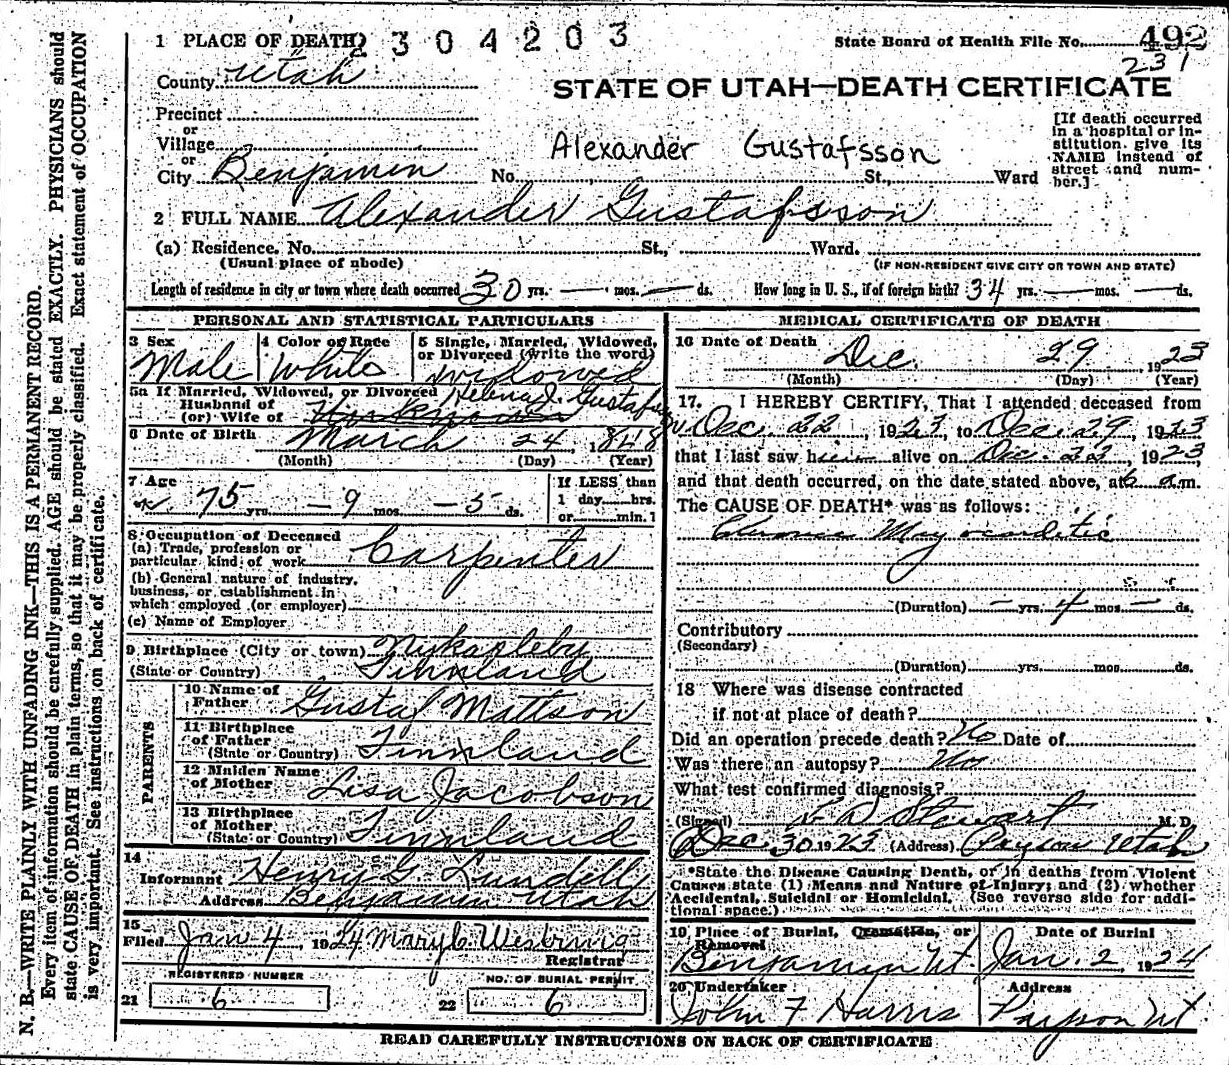 N. B.—WRITE PLAINLY WITH UNFADING INK—THIS IS A PERMANENT RECORD.
Every item of information should be carefully supplied. AGE should be stated EXACTLY. PHYSICIANS should
state CAUSE OF DEATH in plain terms, so that it may be properly classified. Exact statement of OCCUPATION
is very important. See instructions on back of certificate.
1 PLACE OF DEATH 2304203
State Board of Health File No. 492
231
County Utah
STATE OF UTAH—DEATH CERTIFICATE
Precinct
or
Village
or
City Benjamin No. St., Ward
Alexander Gustafsson
[If death occurred
in a hospital or in-
stitution. give its
NAME instead of
street and num-
ber.]
2 FULL NAME Alexander Gustafsson
(a) Residence. No. St., Ward.
(Usual place of abode) (IF NON-RESIDENT GIVE CITY OR TOWN AND STATE)
Length of residence in city or town where death occurred 30 yrs. — mos. — ds. How long in U. S., if of foreign birth? 34 yrs. — mos. — ds.
PERSONAL AND STATISTICAL PARTICULARS
3 Sex
Male
4 Color or Race
White
5 Single, Married, Widowed,
or Divorced (write the word)
Widowed
5a If Married, Widowed, or Divorced
Husband of
(or) Wife of
Helena J. Gustafson
6 Date of Birth March 24, 1848
(Month) (Day) (Year)
7 Age
75 yrs. — 9 mos. — 5 ds.
If LESS than
1 day hrs.
or min.
8 Occupation of Deceased
(a) Trade, profession or
particular kind of work Carpenter
(b) General nature of industry,
business, or establishment in
which employed (or employer)
(c) Name of Employer
9 Birthplace (City or town) Nykapleby
(State or Country) Finnland
PARENTS
10 Name of
Father Gustaf Mattson
11 Birthplace
of Father
(State or Country) Finnland
12 Maiden Name
of Mother Lisa Jacobson
13 Birthplace
of Mother
(State or Country) Finnland
14
Informant Henry G. Lundell
Address Benjamin Utah
15
Filed Jan 4, 1924 Mary C.
Registrar
REGISTERED NUMBER
21 6
NO. OF BURIAL PERMIT
22 6
MEDICAL CERTIFICATE OF DEATH
16 Date of Death
Dec. 29 1923
(Month) (Day) (Year)
17. I HEREBY CERTIFY, That I attended deceased from
Dec. 22, 1923, to Dec. 29, 1923
that I last saw him alive on Dec. 22, 1923,
and that death occurred, on the date stated above, at 6 a.m.
The CAUSE OF DEATH* was as follows:
Chronic Myocarditis
(Duration) — yrs. 4 mos. — ds.
Contributory
(Secondary)
(Duration) yrs. mos. ds.
18 Where was disease contracted
if not at place of death?
Did an operation precede death? No Date of
Was there an autopsy? No
What test confirmed diagnosis?
(Signed) L D Stewart M. D.
Dec. 30 1923 (Address) Payson Utah
*State the Disease Causing Death, or in deaths from Violent
Causes state (1) Means and Nature of Injury; and (2) whether
Accidental, Suicidal or Homicidal. (See reverse side for addi-
tional space.)
19 Place of Burial, Cremation, or
Removal
Benjamin Ut
Date of Burial
Jan. 2, 1924
20 Undertaker
John F Harris
Address
Payson Ut
READ CAREFULLY INSTRUCTIONS ON BACK OF CERTIFICATE